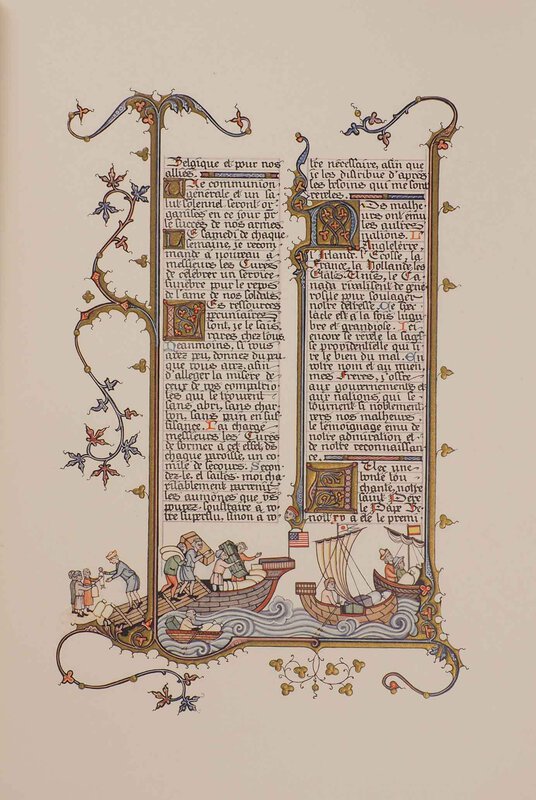 Belgique et pour nos
alliés.
Une communion
générale et un sa-
lut solennel seront or-
ganisés en ce jour pr
le succès de nos armes.
Le samedi de chaque
semaine, je recom-
mande à nouveau à
messieurs les Curés
de célébrer un service
funèbre pour le repos
de l'âme de nos soldats.
Les ressources
pécuniaires
sont, je le sais,
rares chez tous.
Néanmoins, si vous
avez peu, donnez du peu
que vous avez, afin
d'alléger la misère de
ceux de vos compatrio-
tes qui se trouvent
sans abri, sans char-
bon, sans pain en suf-
fisance. J'ai chargé
messieurs les Curés
de former à cet effet, ds
chaque paroisse, un co-
mité de secours. Secon-
dez-le, et faites-moi cha-
ritablement parvenir
les aumônes que vs
pouvez soustraire à vo-
tre superflu, sinon à vo-
tre nécessaire, afin que
je les distribue d'après
les besoins qui me sont
révélés.
Nos malhe-
urs ont ému
les autres
nations. L'
Angleterre,
l'Irlande, l'Ecosse, la
France, la Hollande, les
Etats-Unis, le Ca-
nada rivalisent de géné-
rosité pour soulager
notre détresse. Ce spec-
tacle est à la fois lugu-
bre et grandiose. Ici,
encore se révèle la sages-
se providentielle qui ti-
re le bien du mal. En
votre nom et au mien,
mes Frères, j'offre
aux gouvernements et
aux nations, qui se
tournent si noblement
vers nos malheurs,
le témoignage ému de
notre admiration et
de notre reconnaissan-
ce.
Avec une
bonté tou-
chante, notre
Saint Père
le Pape Be-
noît XV a été le premi-